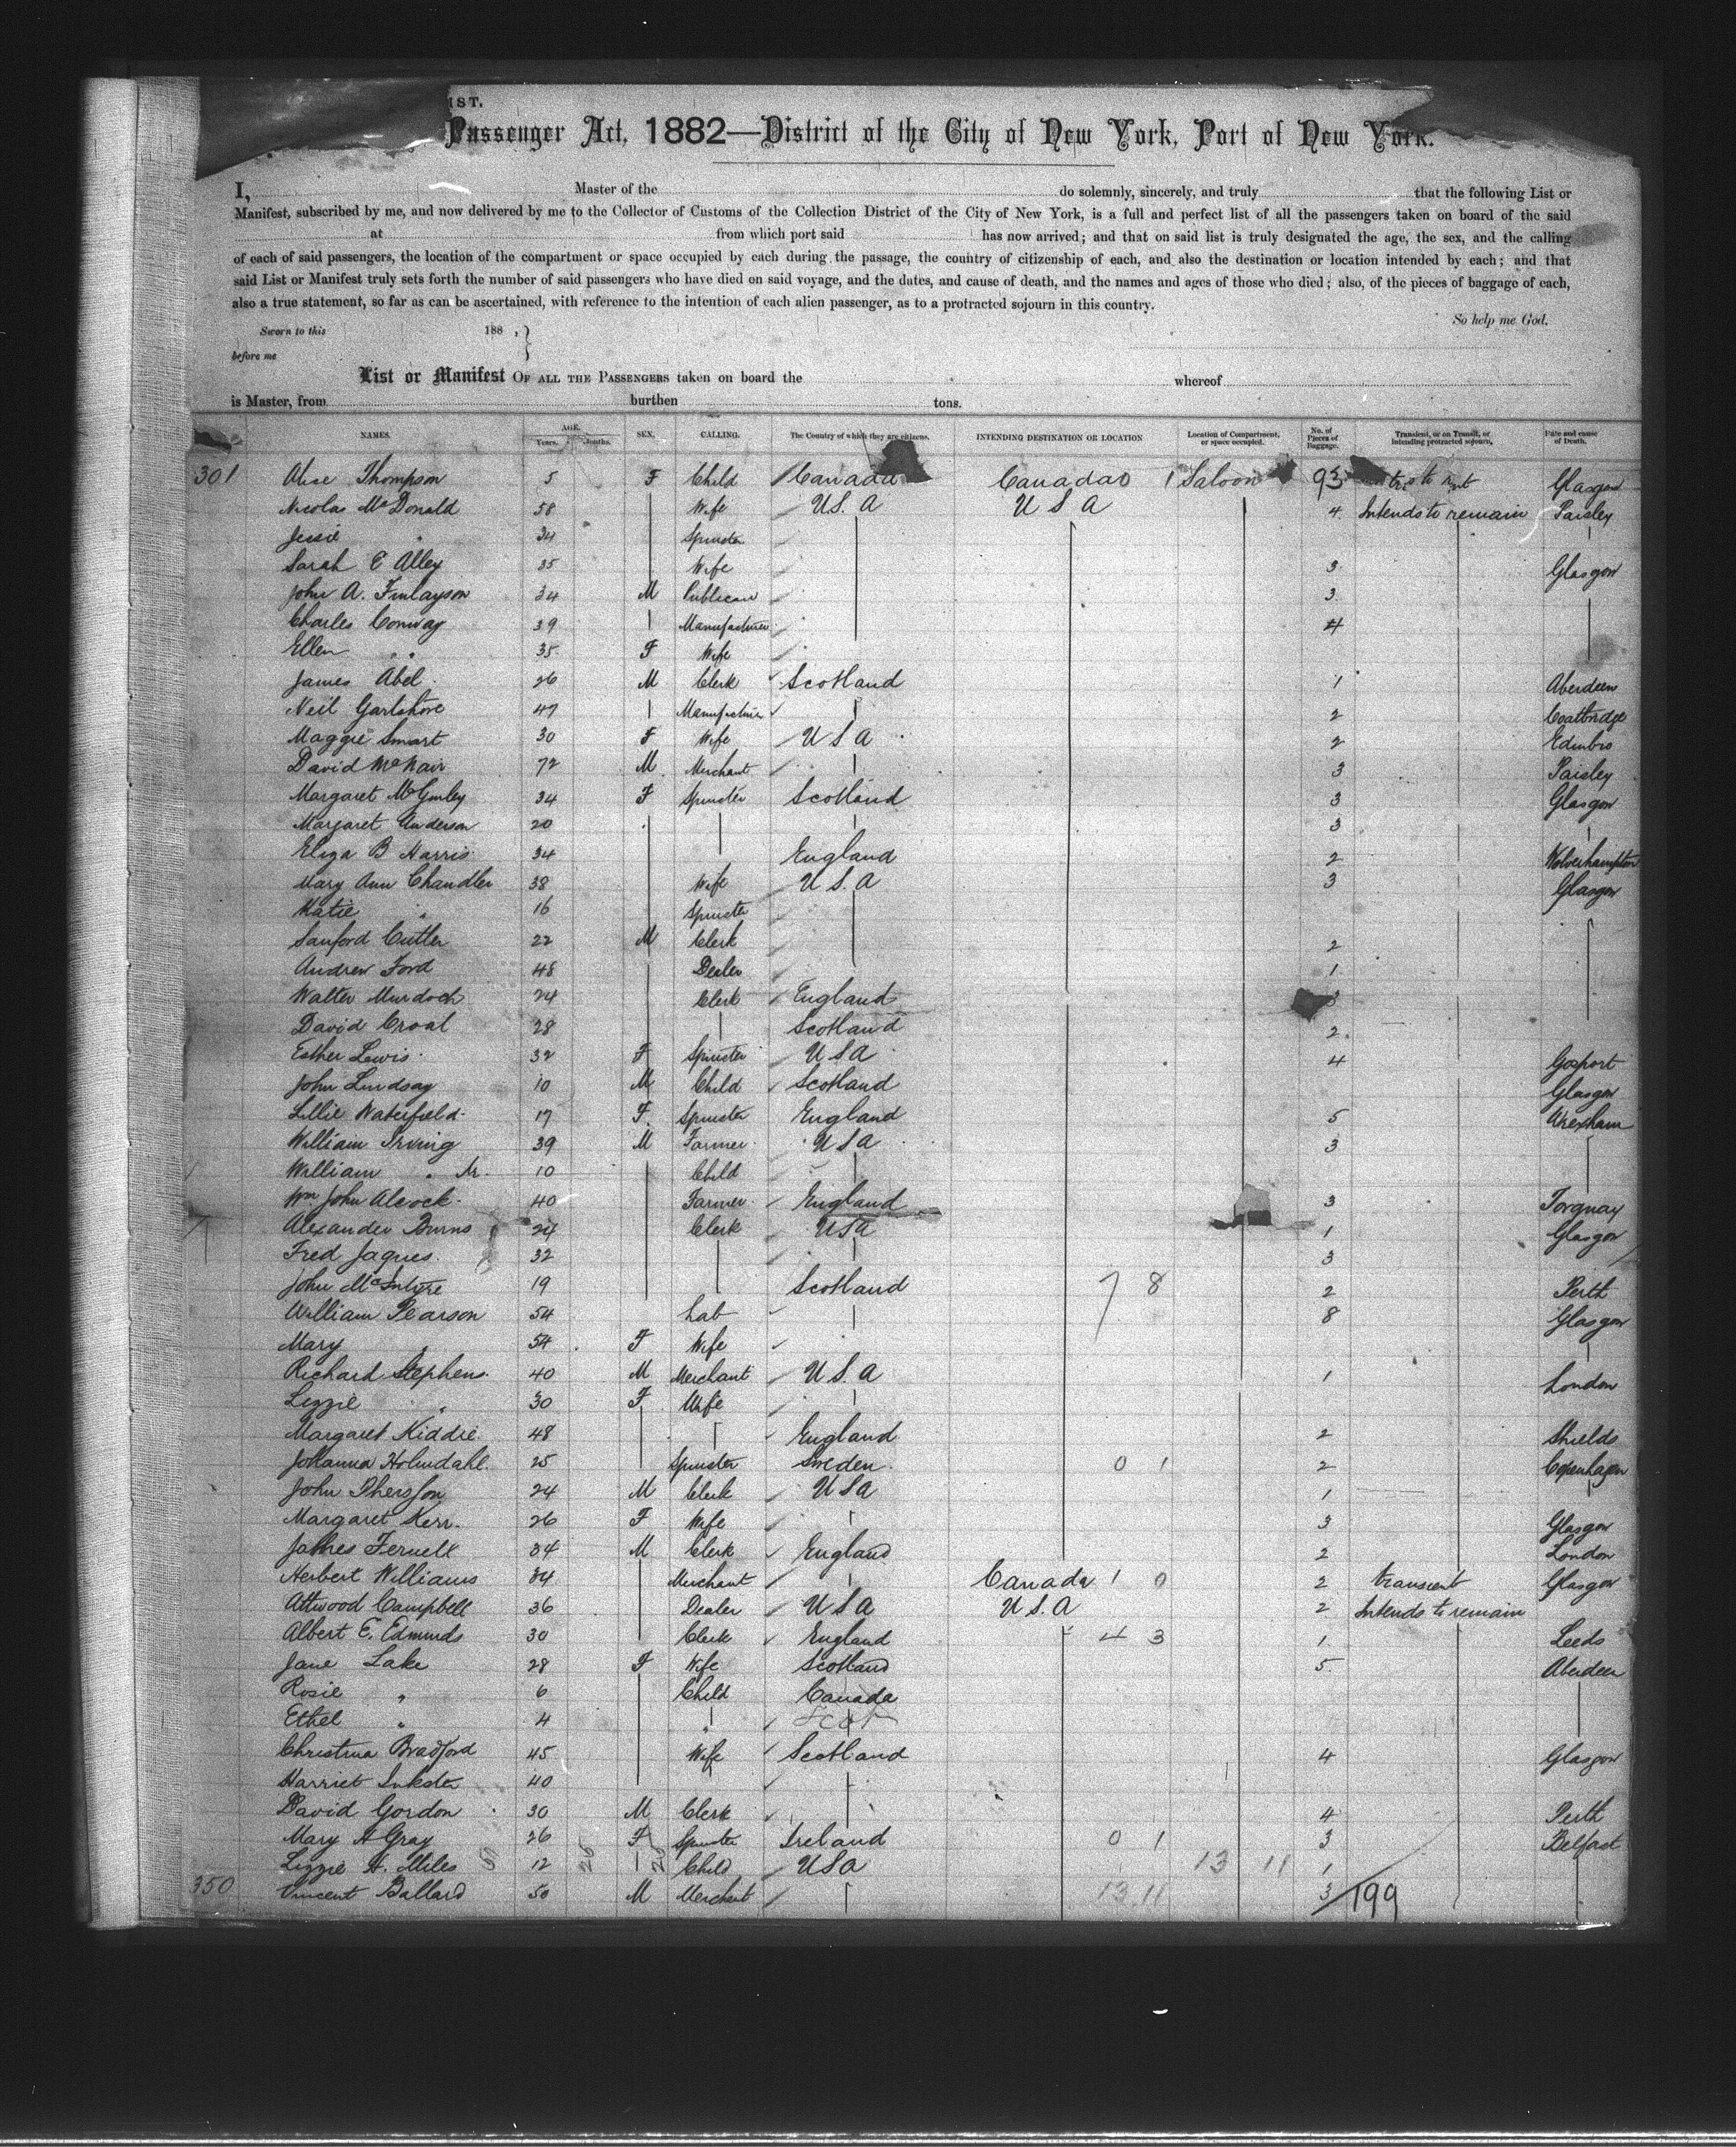 IST.
Passenger Act, 1882—District of the City of New York, Port of New York.
I, Master of the do solemnly, sincerely, and truly that the following List or
Manifest, subscribed by me, and now delivered by me to the Collector of Customs of the Collection District of the City of New York, is a full and perfect list of all the passengers taken on board of the said
at from which port said has now arrived; and that on said list is truly designated the age, the sex, and the calling
of each of said passengers, the location of the compartment or space occupied by each during the passage, the country of citizenship of each, and also the destination or location intended by each; and that
said List or Manifest truly sets forth the number of said passengers who have died on said voyage, and the dates, and cause of death, and the names and ages of those who died; also, of the pieces of baggage of each,
also a true statement, so far as can be ascertained, with reference to the intention of each alien passenger, as to a protracted sojourn in this country.
So help me God.
Sworn to this 188 ,
before me
List or Manifest OF ALL THE PASSENGERS taken on board the whereof
is Master, from burthen tons.
NAMES. AGE. Years. Months. SEX. CALLING. The Country of which they are citizens. INTENDING DESTINATION OR LOCATION Location of Compartment, or space occupied. No. of Pieces of Baggage. Transient, or on Transit, or intending protracted sojourn. Date and cause of Death.
301 Alice Thompson 5 F Child Canada Canada 0 1 Saloon 93 Glasgow
Nicolas McDonald 58 Wife U.S.A U S A 4 Intends to remain Paisley
Jessie " 34 Spinster
Sarah E Alley 35 Wife 3 Glasgow
John A. Finlayson 34 M Publican 3
Charles Conway 39 Manufacturer 4
Ellen " 35 F Wife
James Abel 26 M Clerk Scotland 1 Aberdeen
Neil Gartshore 47 Manufacturer 2 Coatbridge
Maggie Smart 30 F Wife U S A 2 Edinbro
David McNair 72 M Merchant 3 Paisley
Margaret McGinley 34 F Spinster Scotland 3 Glasgow
Margaret Anderson 20 3
Eliza B Harris 34 England 2 Wolverhampton
Mary Ann Chandler 38 Wife U.S.A 3 Glasgow
Katie " 16 Spinster
Sanford Cutler 22 M Clerk 2
Andrew Ford 48 Dealer 1
Walter Murdoch 24 Clerk England 3
David Croal 28 Scotland 2
Esther Lewis 32 F Spinster U S A 4 Gosport
John Lindsay 10 M Child Scotland Glasgow
Lillie Waterfield 17 F Spinster England 5 Wrexham
William Irving 39 M Farmer U S A 3
William " Jr. 10 Child
Wm John Alcock 40 Farmer England 3 Torquay
Alexander Burns 24 Clerk U S A 1 Glasgow
Fred Jaques 32 3
John McIntyre 19 Scotland 7 8 2 Perth
William Pearson 54 Lab 8 Glasgow
Mary " 54 F Wife
Richard Stephens 40 M Merchant U.S.A 1 London
Lizzie " 30 F Wife
Margaret Kiddie 48 England 2 Shields
Johanna Holmdahl 25 Spinster Sweden 0 1 2 Copenhagen
John Pherson 24 M Clerk U S A 1
Margaret Kerr 26 F Wife 3 Glasgow
James Fernell 34 M Clerk England 2 London
Herbert Williams 34 Merchant Canada 1 0 2 transient Glasgow
Attwood Campbell 36 Dealer U S A U.S.A 2 Intends to remain
Albert E. Edmunds 30 Clerk England 4 3 1 Leeds
Jane Lake 28 F Wife Scotland 5 Aberdeen
Rosie " 6 Child Canada
Ethel " 4 " Scot
Christina Bradford 45 Wife Scotland 4 Glasgow
Harriet Inkster 40
David Gordon 30 M Clerk 4 Perth
Mary A Gray 26 F Spinster Ireland 0 1 3 Belfast
Lizzie H. Miles 12 Child U S A 13 11 1
350 Vincent Ballard 50 M Merchant 13.11 3 199